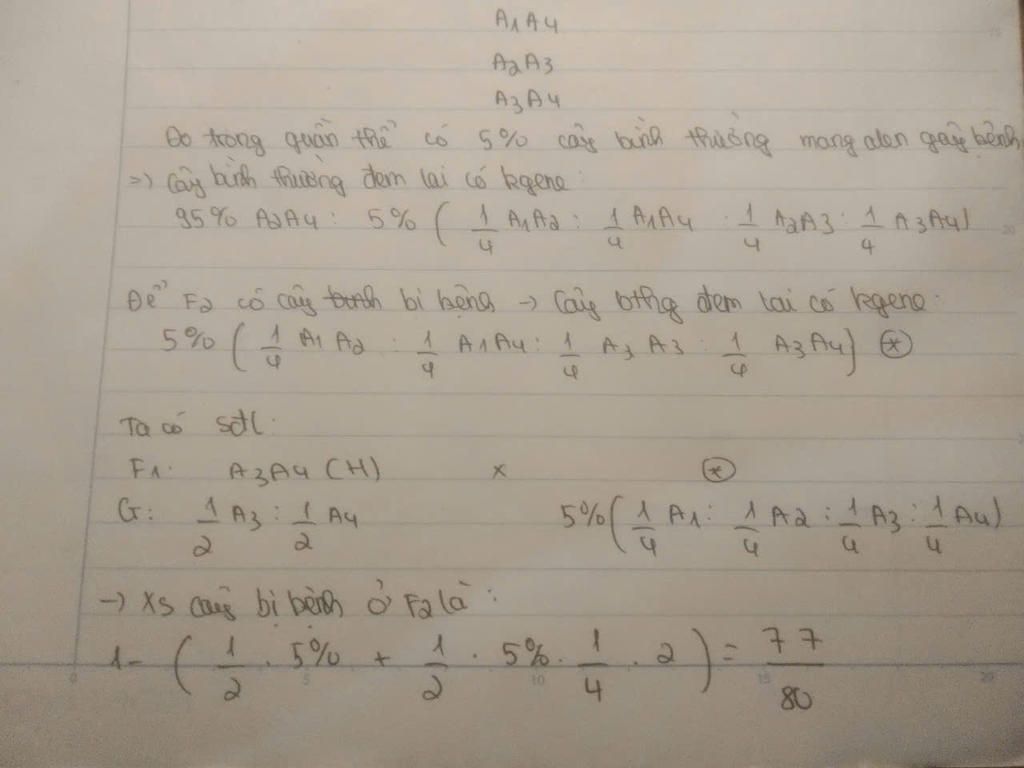 A₁A₄
A₂A₃
A₃A₄
Do trong quần thể có 5% cây bình thường mang alen gây bệnh
=> Cây bình thường đem lai có kgene:
95% A₂A₄ : 5% ( 1/4 A₁A₂ : 1/4 A₁A₄ : 1/4 A₂A₃ : 1/4 A₃A₄)
Để F₂ có cây bình bị bệnh → Cây bthg đem lai có kgene:
5% ( 1/4 A₁A₂ : 1/4 A₁A₄ : 1/4 A₃A₃ : 1/4 A₃A₄) ⊛
Ta có sđl:
F₁: A₃A₄ (H) x ⊛
G: 1/2 A₃ : 1/2 A₄ 5% ( 1/4 A₁ : 1/4 A₂ : 1/4 A₃ : 1/4 A₄)
→ XS cây bị bệnh ở F₂ là :
1 - ( 1/2 . 5% + 1/2 . 5% . 1/4 . 2 ) = 77/80